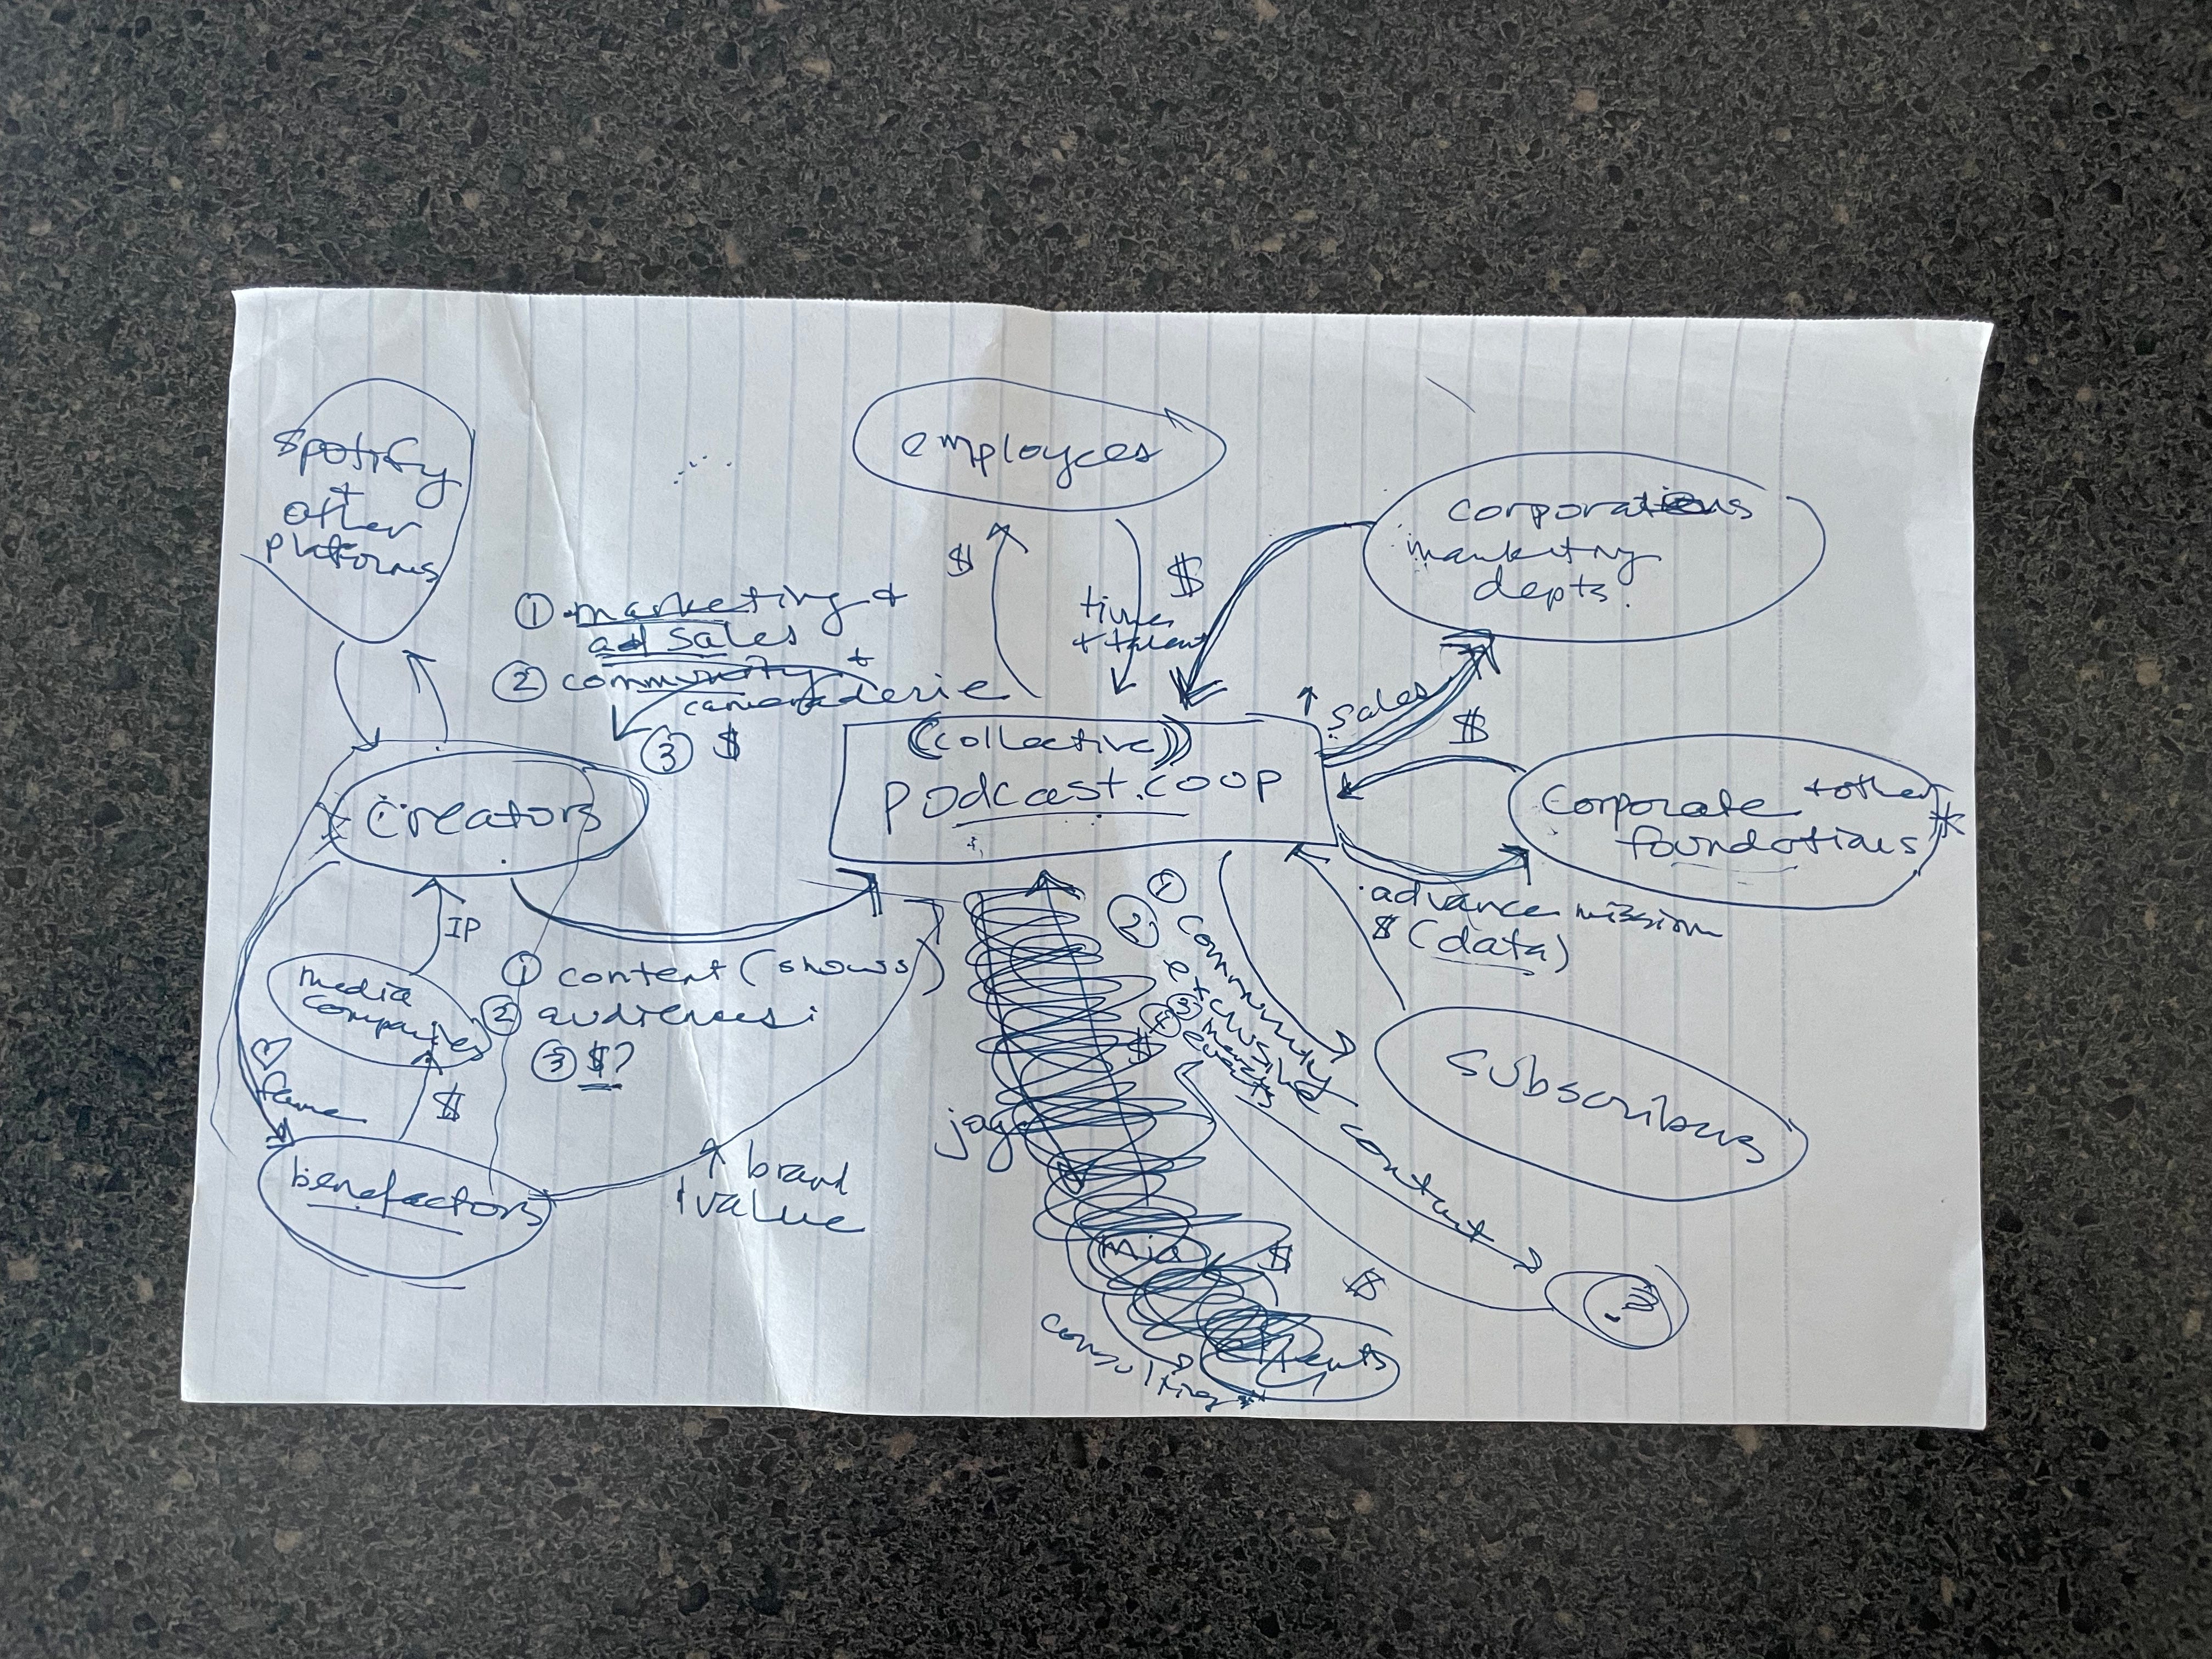 spotify
+
other
platforms
employees
corporations
marketing
depts.
$
$
time
+ talent
① marketing +
ad sales
② community +
camaraderie
③ $
↑ sales
$
((collective))
podcast.coop
creators
corporate + other *
foundations
advance mission
$ (data)
IP
media
companies
① content (shows)
② audiences
③ $?
♡
fame
$
benefactors
↑ brand
+ value
①
② community
exclusive content
③ merch
④ events
$
subscribers
$
$
?
consulting *